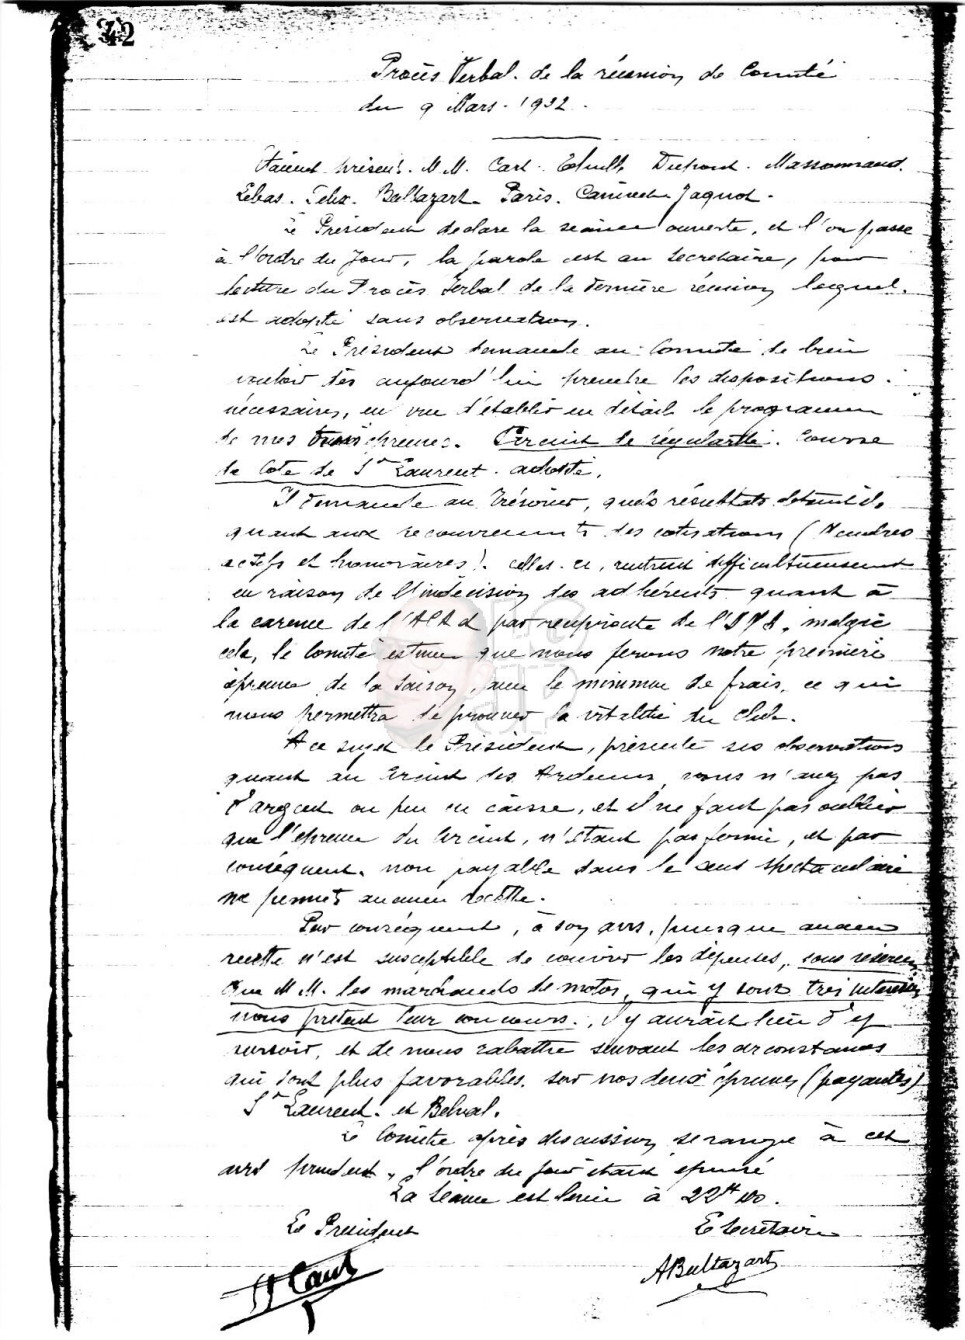 42
Procès Verbal. de la réunion de Comité
du 9 Mars. 1932.
Etaient présents. M M. Cart. Dupont. Massonnaud.
Lebas. Felix. Baltazart. Paris. Jaquot.
Le Président declare la séance ouverte, et l'on passe
à l'ordre du Jour, la parole est au secretaire, pour
lecture du Procès Verbal de la dernière réunion lequel.
est adopté sans observation.
Le Président demande au Comité de bien
vouloir dès aujourd'hui prendre les dispositions.
nécessaires, en vue d'établir en détail le programme
de nos trois épreuves. Circuit de régularité. Course
de Cote de St Laurent. adopté.
Il demande au Trésorier, quels résultats
quant aux recouvrements des cotisations (Membres
actifs et honoraires). celles-ci, rentrent difficultueusement
en raison de l'indécision des adhérents quant à
la carence de l' par réciprocité de l' malgré
cela, le Comité estime que nous ferons notre première
épreuve de la saison, avec le minimum de frais, ce qui
nous permettra de prouver la vitalité du club.
A ce sujet le Président, présente ses observations
quant au Circuit des Ardennes, nous n'avons pas
d'argent ou peu en caisse, et il ne faut pas oublier
que l'épreuve du Circuit, n'étant pas fermé, et par
conséquent. non payable dans le sens spectaculaire
ne permet aucune recette.
Par conséquent, à son avis, puisque aucune
recette n'est susceptible de couvrir les dépenses, sous réserve
que M M. les marchands de motos, qui y sont très intéressés
nous prêtent leur concours., il y aurait lieu d'y
surseoir, et de nous rabattre suivant les circonstances
qui sont plus favorables. sur nos deux épreuves (payantes)
St Laurent. et Belval.
Le Comité après discussion, se range à cet
avis prudent, l'ordre du jour étant épuisé
La Séance est levée à 22H
Le Président
Le Secrétaire
ABaltazart